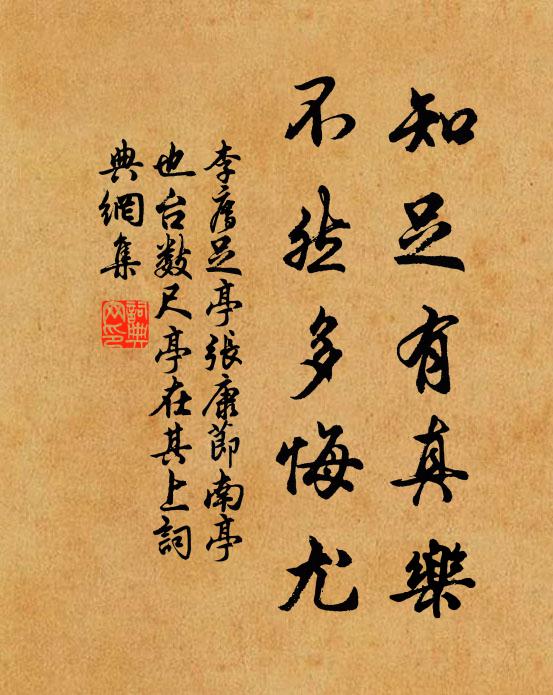 知足有真樂
不然多悔尤
李廌足亭張康節南亭
也台数尺亭在其上詞
典網集
詞典
网印